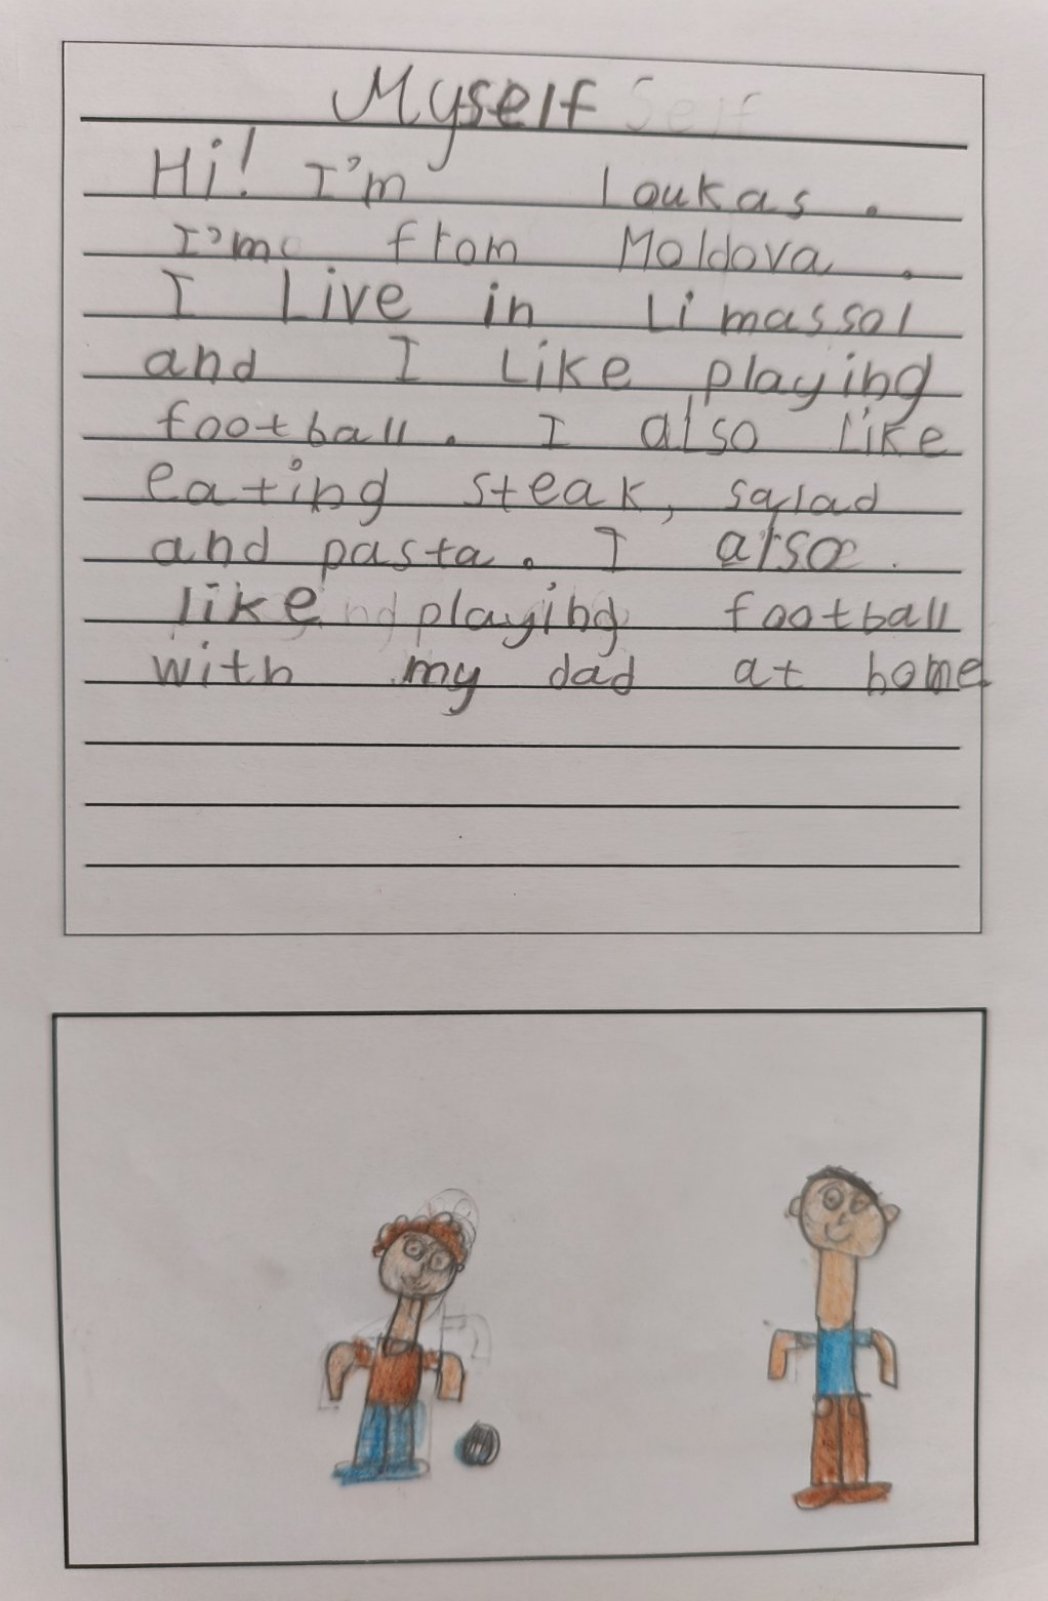 Myself
Hi! I'm Loukas.
I'm from Moldova.
I Live in Limassol
and I Like playing
football. I also like
eating steak, salad
and pasta. I also
like playing football
with my dad at home